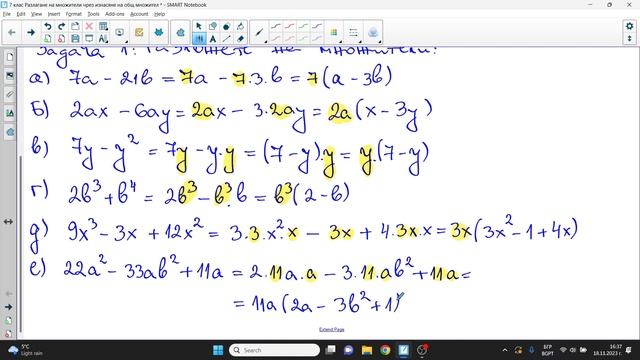 7 клас Разлагане на множители чрез изнасяне на общ множител * - SMART Notebook
File Edit View Insert Format Tools Add-ons Help
Задача 1: Разложете на множители:
а) 7a - 21b = 7a - 7.3.b = 7(a - 3b)
б) 2ax - 6ay = 2ax - 3.2ay = 2a(x - 3y)
в) 7y - y² = 7y - y.y = (7 - y).y = y.(7 - y)
г) 2b³ + b⁴ = 2b³ - b³.b = b³(2 - b)
д) 9x³ - 3x + 12x² = 3.3.x².x - 3x + 4.3x.x = 3x(3x² - 1 + 4x)
е) 22a² - 33ab² + 11a = 2.11a.a - 3.11.ab² + 11a =
= 11a(2a - 3b² + 1)
Extend Page
5°C
Light rain
БГР
BGPT
16:37
18.11.2023 г.